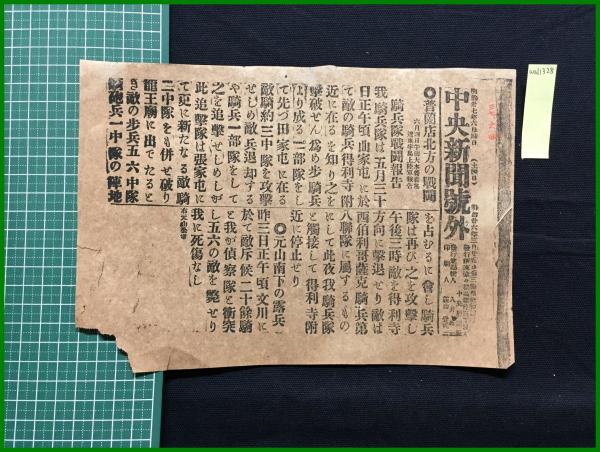 中央新聞號外
◎普蘭店北方の戰鬪
騎兵隊戰鬪報告
我騎兵隊は五月三十
日正午頃曲家屯に於
て敵の騎兵得利寺附
近に在るを知り之を
擊破せん爲め步騎兵
より成る一部隊をし
て先づ田家屯に在る
敵騎約三中隊を攻擊
せしめ敵兵退却する
や騎兵一部隊をして
之を追擊せしめしが
此追擊隊は張家屯に
て更に新たなる敵騎
二中隊をも併せ破り
龍王廟に出でたると
き敵の步兵五六中隊
騎砲兵一中隊の陣地
を占むるに會し騎兵
隊は再び之を攻擊し
午後三時敵を得利寺
方向に擊退せり敵は
西伯利哥薩克騎兵第
八聯隊に屬するもの
にして此夜我騎兵隊
と觸接して得利寺附
近に停止せり
◎元山南下の露兵
昨三日正午頃文川に
於て敵斥候二十餘騎
と我が偵察隊と衝突
し五六の敵を斃せり
我に死傷なし
wa21328